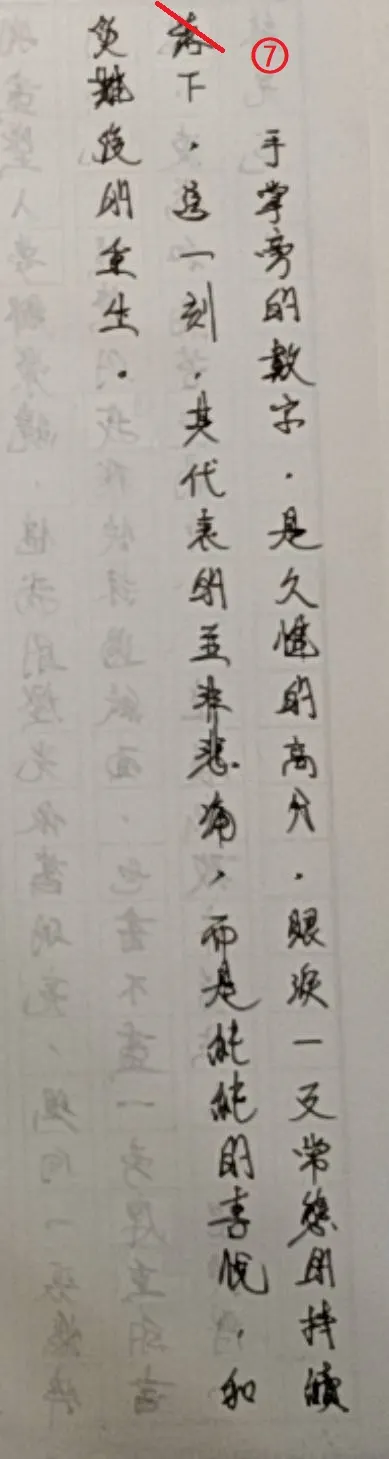 ⑦
手掌旁的數字，是久違的高分，眼淚一反常態的持續
落下，這一刻，其代表的並非悲痛，而是純純的喜悅，和
災難後的重生。